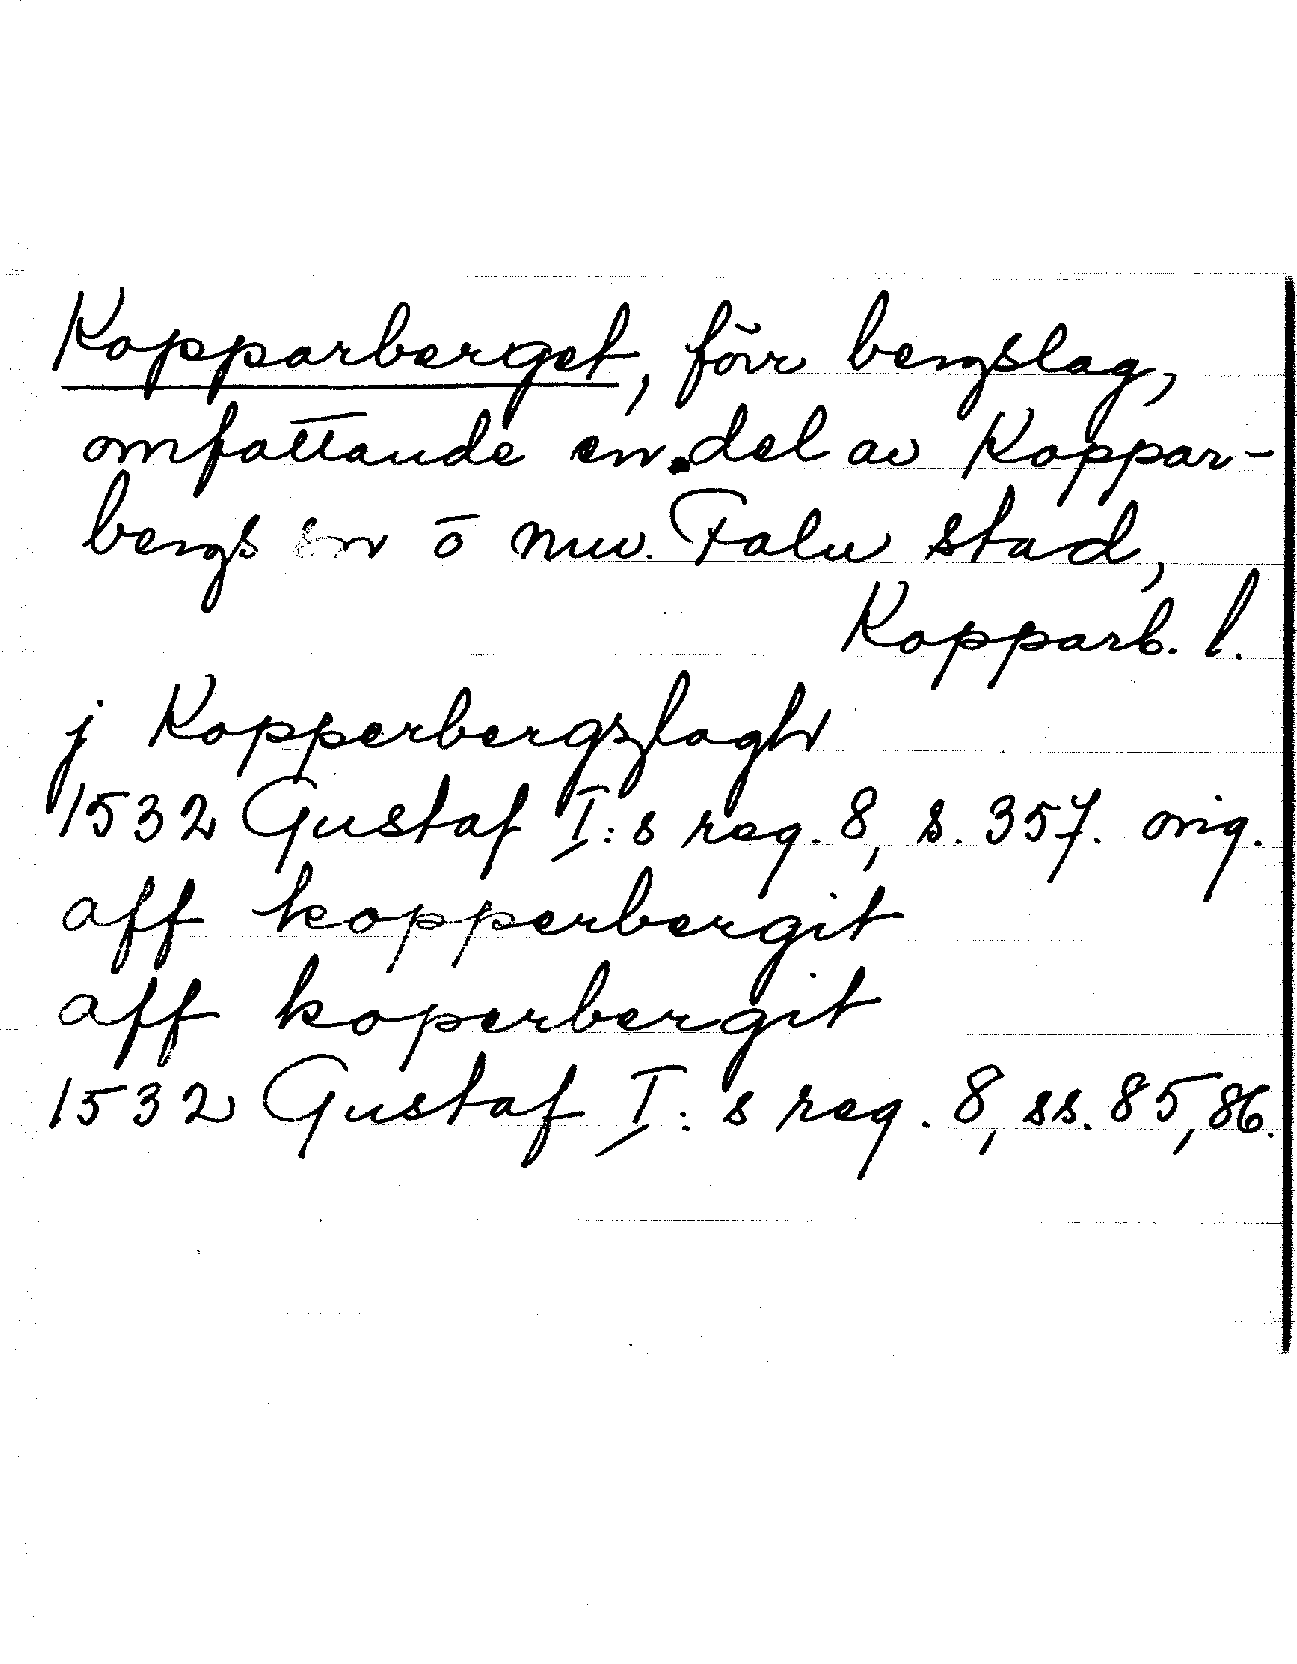 Kopparberget, förr bergslag,
omfattande en del av Koppar-
bergs sn o nuv. Falu stad,
Kopparb. l.
j Kopperbergzlaghr
1532 Gustaf I:s reg. 8, s. 357. orig.
aff kopperbergit
aff koperbergit
1532 Gustaf I:s reg. 8, ss. 85, 86.